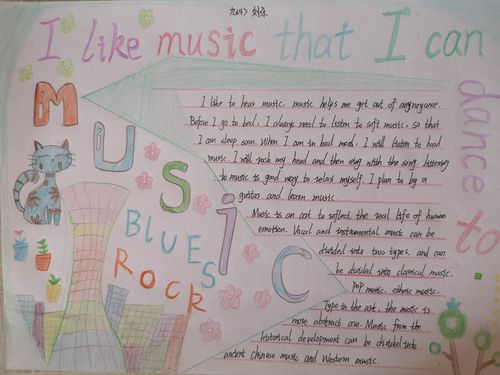 I like music that I can
dance to.
MUSIC
BLUES
ROCK
I like to hear music, music helps me get out of
Before I go to bed, I always need to listen to soft music, so that
I can sleep soon When I am in bad mood, I will listen to hard
music. I will rock my head and then sing with the song. listening
to music is good way to relax myself. I plan to by a
guitar and learn music.
Music is an art to reflect the real life of human
emotion. Vocal and instrumental music can be
divided into two types. and can
be divided into classical music,
Pop music, ethnic music.
Type in the art, the music is
more abstract one. Music from the
historical development can be divided into
ancient Chinese music and Western music.